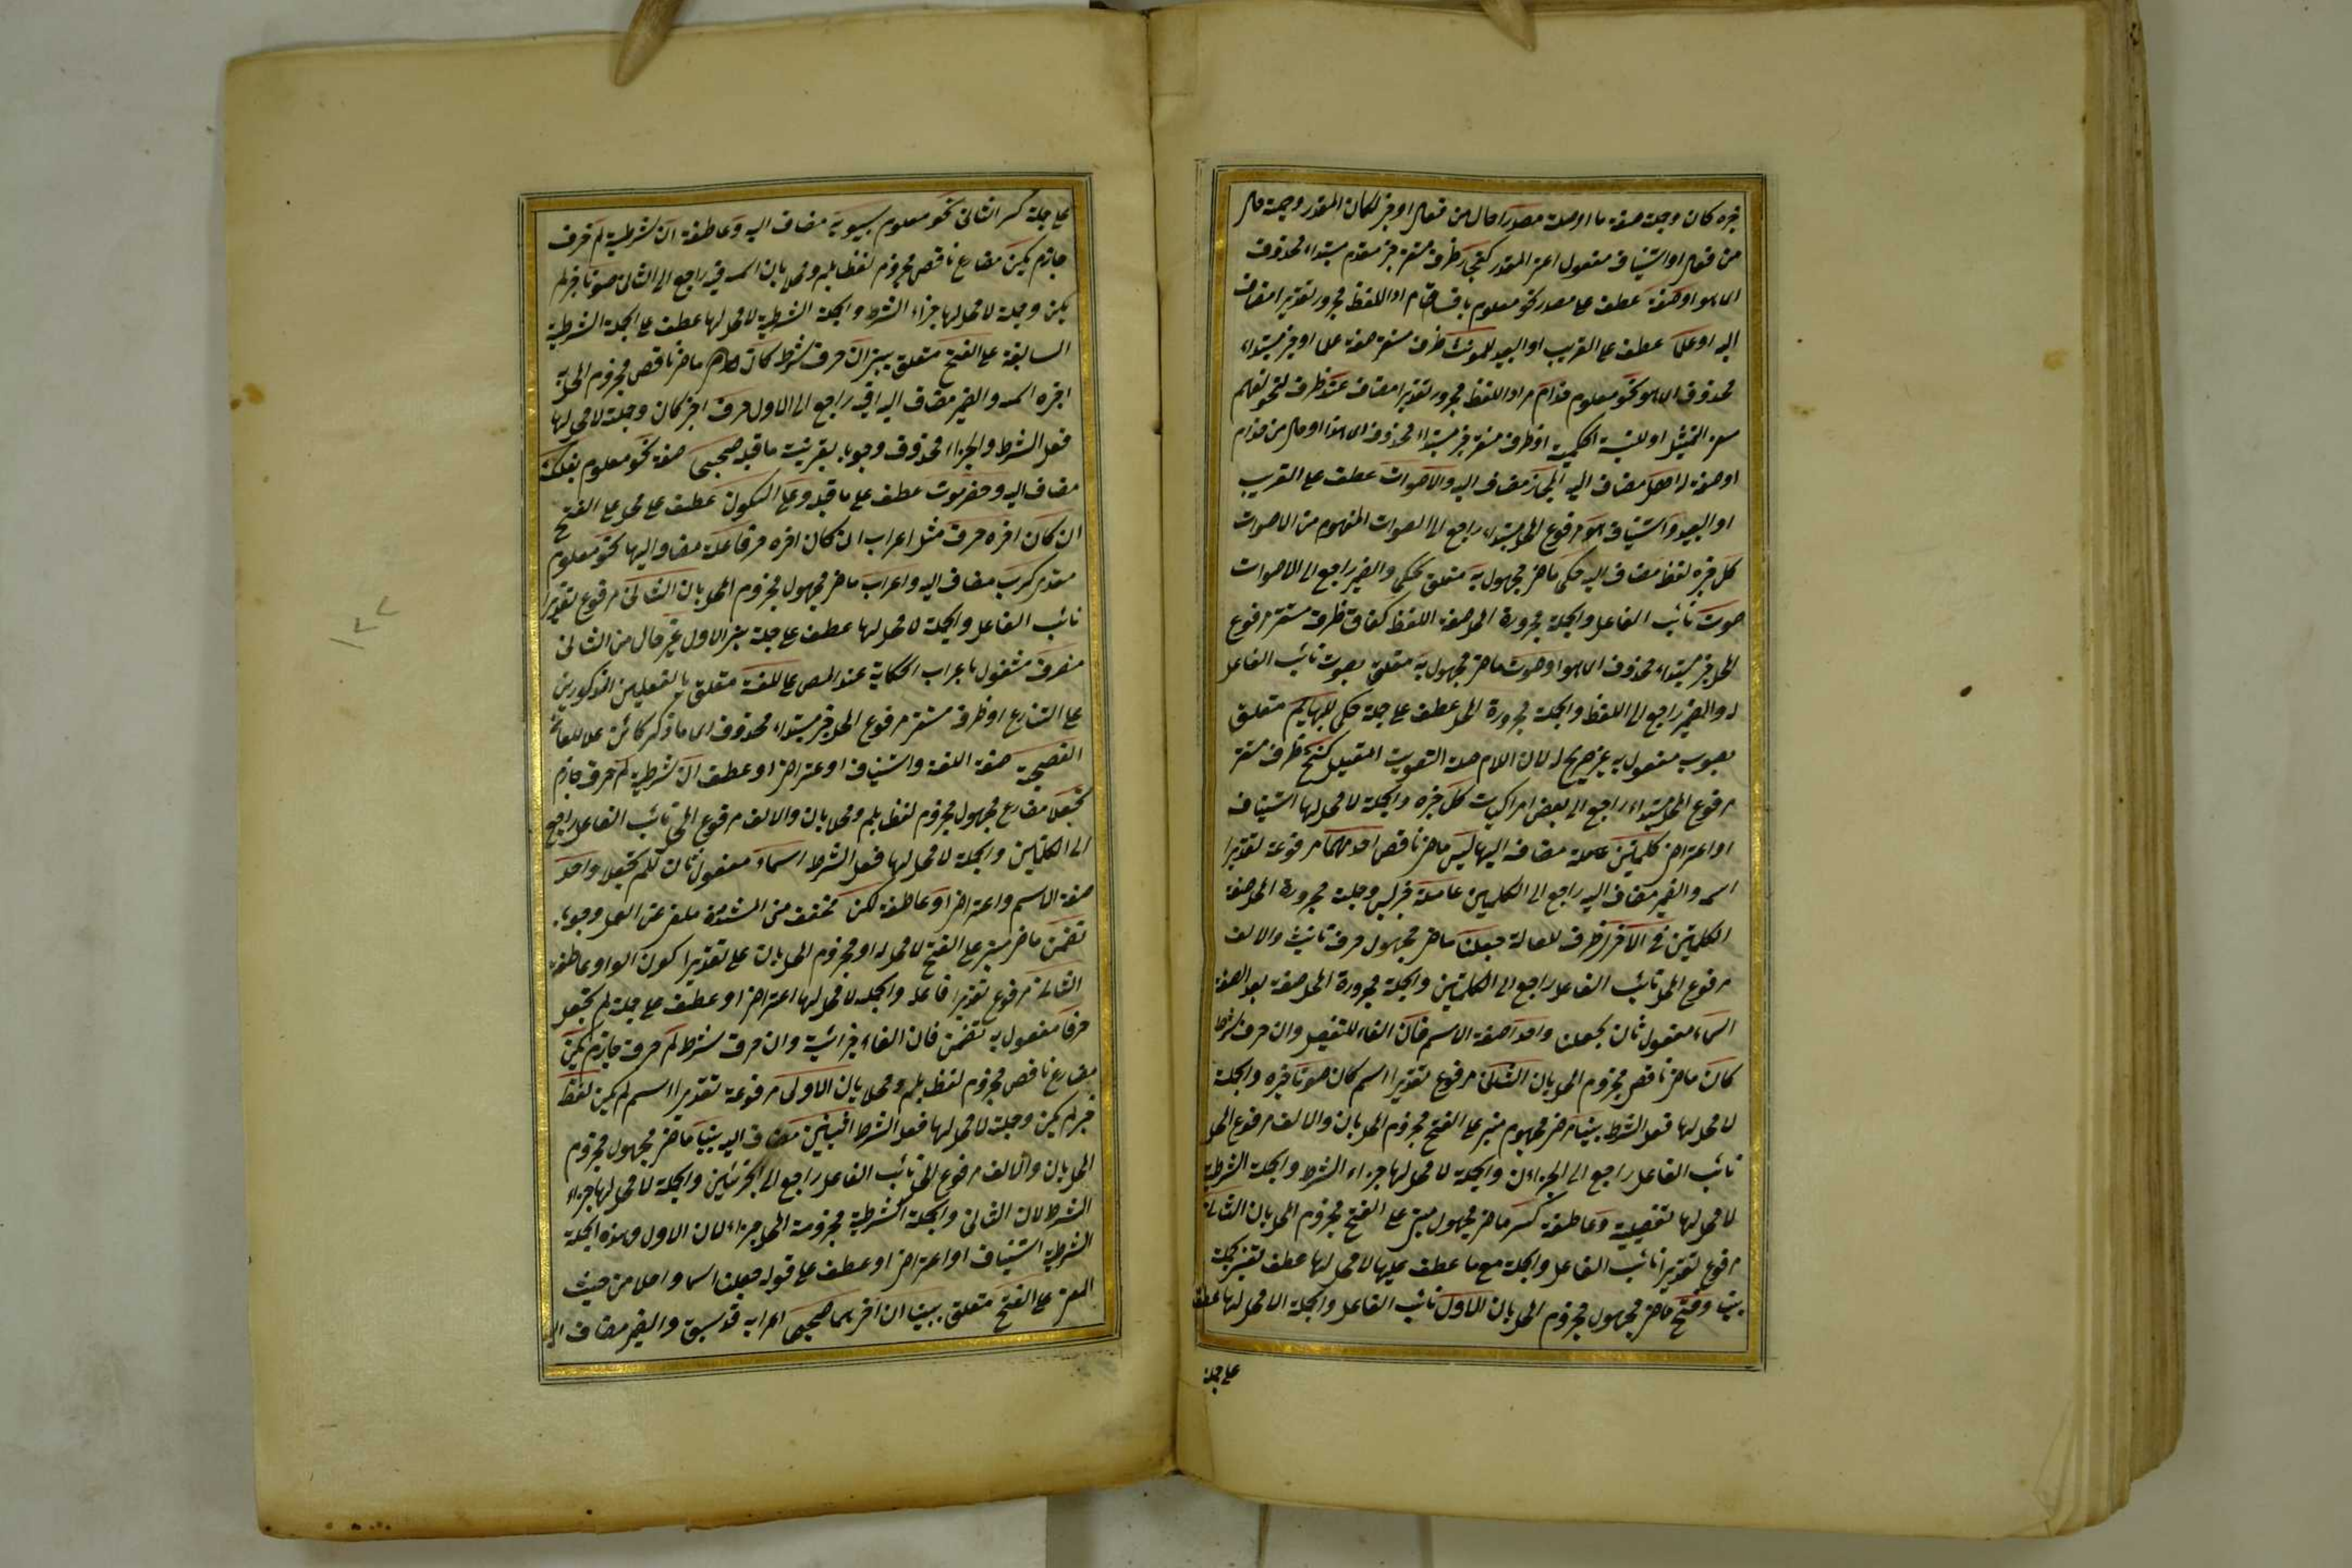 خبره كان وجملة صفة ما او صلة مصدرا حال من فعال او خبر لكان المقدر وجملة حال
من فعال او استيناف مفعول اعنى المقدر كفجار ظرف مستقر خبر مقدم مبتداء محذوف
اى هو او صفة عطف على مصدر نحو معلوم يا فساق مراد اللفظ مجرور تقديرا مضاف
اليه او علما عطف على القريب او البعيد للمونث ظرف مستقر صفة علما او خبر مبتداء
محذوف اى هو نحو معلوم حذام مراد اللفظ مجرور تقديرا مضاف عند ظرف لنحو لفهم
معنى التمثيل او للنسبة الحكمية او ظرف مستقر خبر مبتداء محذوف اى هذا او حال من حذام
او صفة له اهل مضاف اليه الحجاز مضاف اليه والاصوات عطف على القريب
او البعيد واستيناف هو مرفوع المحل مبتداء راجع الى الصوات المفهوم من الاصوات
كل خبره لفظ مضاف اليه حكى ماض مجهول به متعلق بحكى والضمير راجع الى الاصوات
صوت نائب الفاعل والجملة مجرورة المحل صفة اللفظ كغاق ظرف مستقر مرفوع
المحل خبر مبتداء محذوف اى هو او صوت ماض مجهول به متعلق بصوت نائب الفاعل
له والضمير راجع الى اللفظ والجملة مجرورة المحل عطف على جملة حكى للبهايم متعلق
بصوت مفعول به غير صريح له لان اللام صلة التصويت كنخ ظرف مستقر
مرفوع المحل مبتداء راجع الى بعض المركبات كل خبره والجملة لا محل لها استيناف
او اعتراض كلمتين مضاف اليها ليس ماض ناقص احديهما مرفوعة تقديرا
اسمه والضمير مضاف اليه راجع الى الكلمتين عاملة خبر ليس وجملة مجرورة المحل صفة
الكلمتين فى الاخرى ظرف للعاملة جعلتا ماض مجهول حرف تانيث والالف
مرفوع المحل نائب الفاعل راجع الى الكلمتين والجملة مجرورة المحل صفة بعد الصفة
اسما مفعول ثان لجعلت واحدا صفة الاسم فان الفاء للتفصيل وان حرف شرط
كان ماض ناقص مجزوم المحل بان الثانى مرفوع تقديرا اسم كان صوتا خبره والجملة
لا محل لها فعل الشرط بنيا ماض مجهول مبنى على الفتح مجزوم المحل بان والالف مرفوع المحل
نائب الفاعل راجع الى الجزءان والجملة لا محل لها جزاء الشرط والجملة الشرطية
لا محل لها تفصيلية وعاطفة كسر ماض مجهول مبنى على الفتح مجزوم المحل بان الثانى
مرفوع تقديرا نائب الفاعل والجملة مع ما عطف عليها لا محل لها عطف تفسير لجملة
بنيا وفتح ماض مجهول مجزوم المحل بان الاول نائب الفاعل والجملة لا محل لها عطف
على جملة
على جملة كسر الثانى نحو معلوم سيبويه مضاف اليه وعاطفة ان شرطية لم حرف
جازم يكن مضارع ناقص مجزوم لفظا بلم ومحلا بان اسمه فيه راجع الى الثانى صوتا خبر لم
يكن وجملة لا محل لها جزاء الشرط والجملة الشرطية لا محل لها عطف على الجملة الشرطية
السابقة على الفتح متعلق ببنى ان حرف شرط كان ماض ناقص مجزوم المحل به
اخره اسمه والضمير مضاف اليه راجع الى الاول حرف خبر كان وجملة لا محل لها
فعل الشرط والجزاء محذوف وجوبا بقرينة ما قبله صحيحى صفة نحو معلوم بعلبك
مضاف اليه وحضرموت عطف على ما قبله وعلى السكون عطف على محل على الفتح
ان كان اخره حرف مثل اعراب ان كان اخره حرفا علة مضاف اليها نحو معلوم
معدى كرب مضاف اليه واعراب ماض مجهول مجزوم المحل بان الثانى مرفوع تقديرا
نائب الفاعل والجملة لا محل لها عطف على جملة بنى الاول غير حال من الثانى
منصرف مشغول باعراب الحكاية عند المص على اللغة متعلق بالفعلين المذكورين
على التنازع او ظرف مستقر مرفوع المحل خبر مبتداء محذوف اى ما ذكر كائن على اللغة
الفصيحة صفة اللغة واستيناف او اعتراض او عطف ان شرطية لم حرف جازم
تجعلا مضارع مجهول مجزوم لفظا بلم ومحلا بان والالف مرفوع المحل نائب الفاعل راجع
الى الكلمتين والجملة لا محل لها فعل الشرط اسما مفعول ثان للم تجعلا واحدا
صفة الاسم واعتراض او عاطفة لكن مخفف من المشددة ملغى عن العمل وجوبا
تضمن ماض مبنى على الفتح لا محل له او مجزوم المحل بان على تقدير كون الواو عاطفة
الثانى مرفوع تقديرا فاعله والجملة لا محل لها اعتراض او عطف على جملة لم تجعل
حرفا مفعول به تضمن فان الفاء جزائية وان حرف شرط لم حرف جازم يكن
مضارع ناقص مجزوم لفظا بلم ومحلا بان الاولى مرفوعة تقديرا اسم لم يكن لفظ
خبر لم يكن وجملة لا محل لها فعل الشرط مضاف اليه بنيا ماض مجهول مجزوم
المحل بان والالف مرفوع المحل نائب الفاعل راجع الى الجزئين والجملة لا محل لها جزاء
الشرط لان الثانى والجملة الشرطية مجزومة المحل جزاء لان الاول وهذه الجملة
الشرطية استيناف او اعتراض او عطف على قوله جعلت اسما واحدا من حيث
المعنى على الفتح متعلق ببنيا ان اخرهما صحيحى اعرابه قد سبق والضمير مضاف اليه
١٢٢